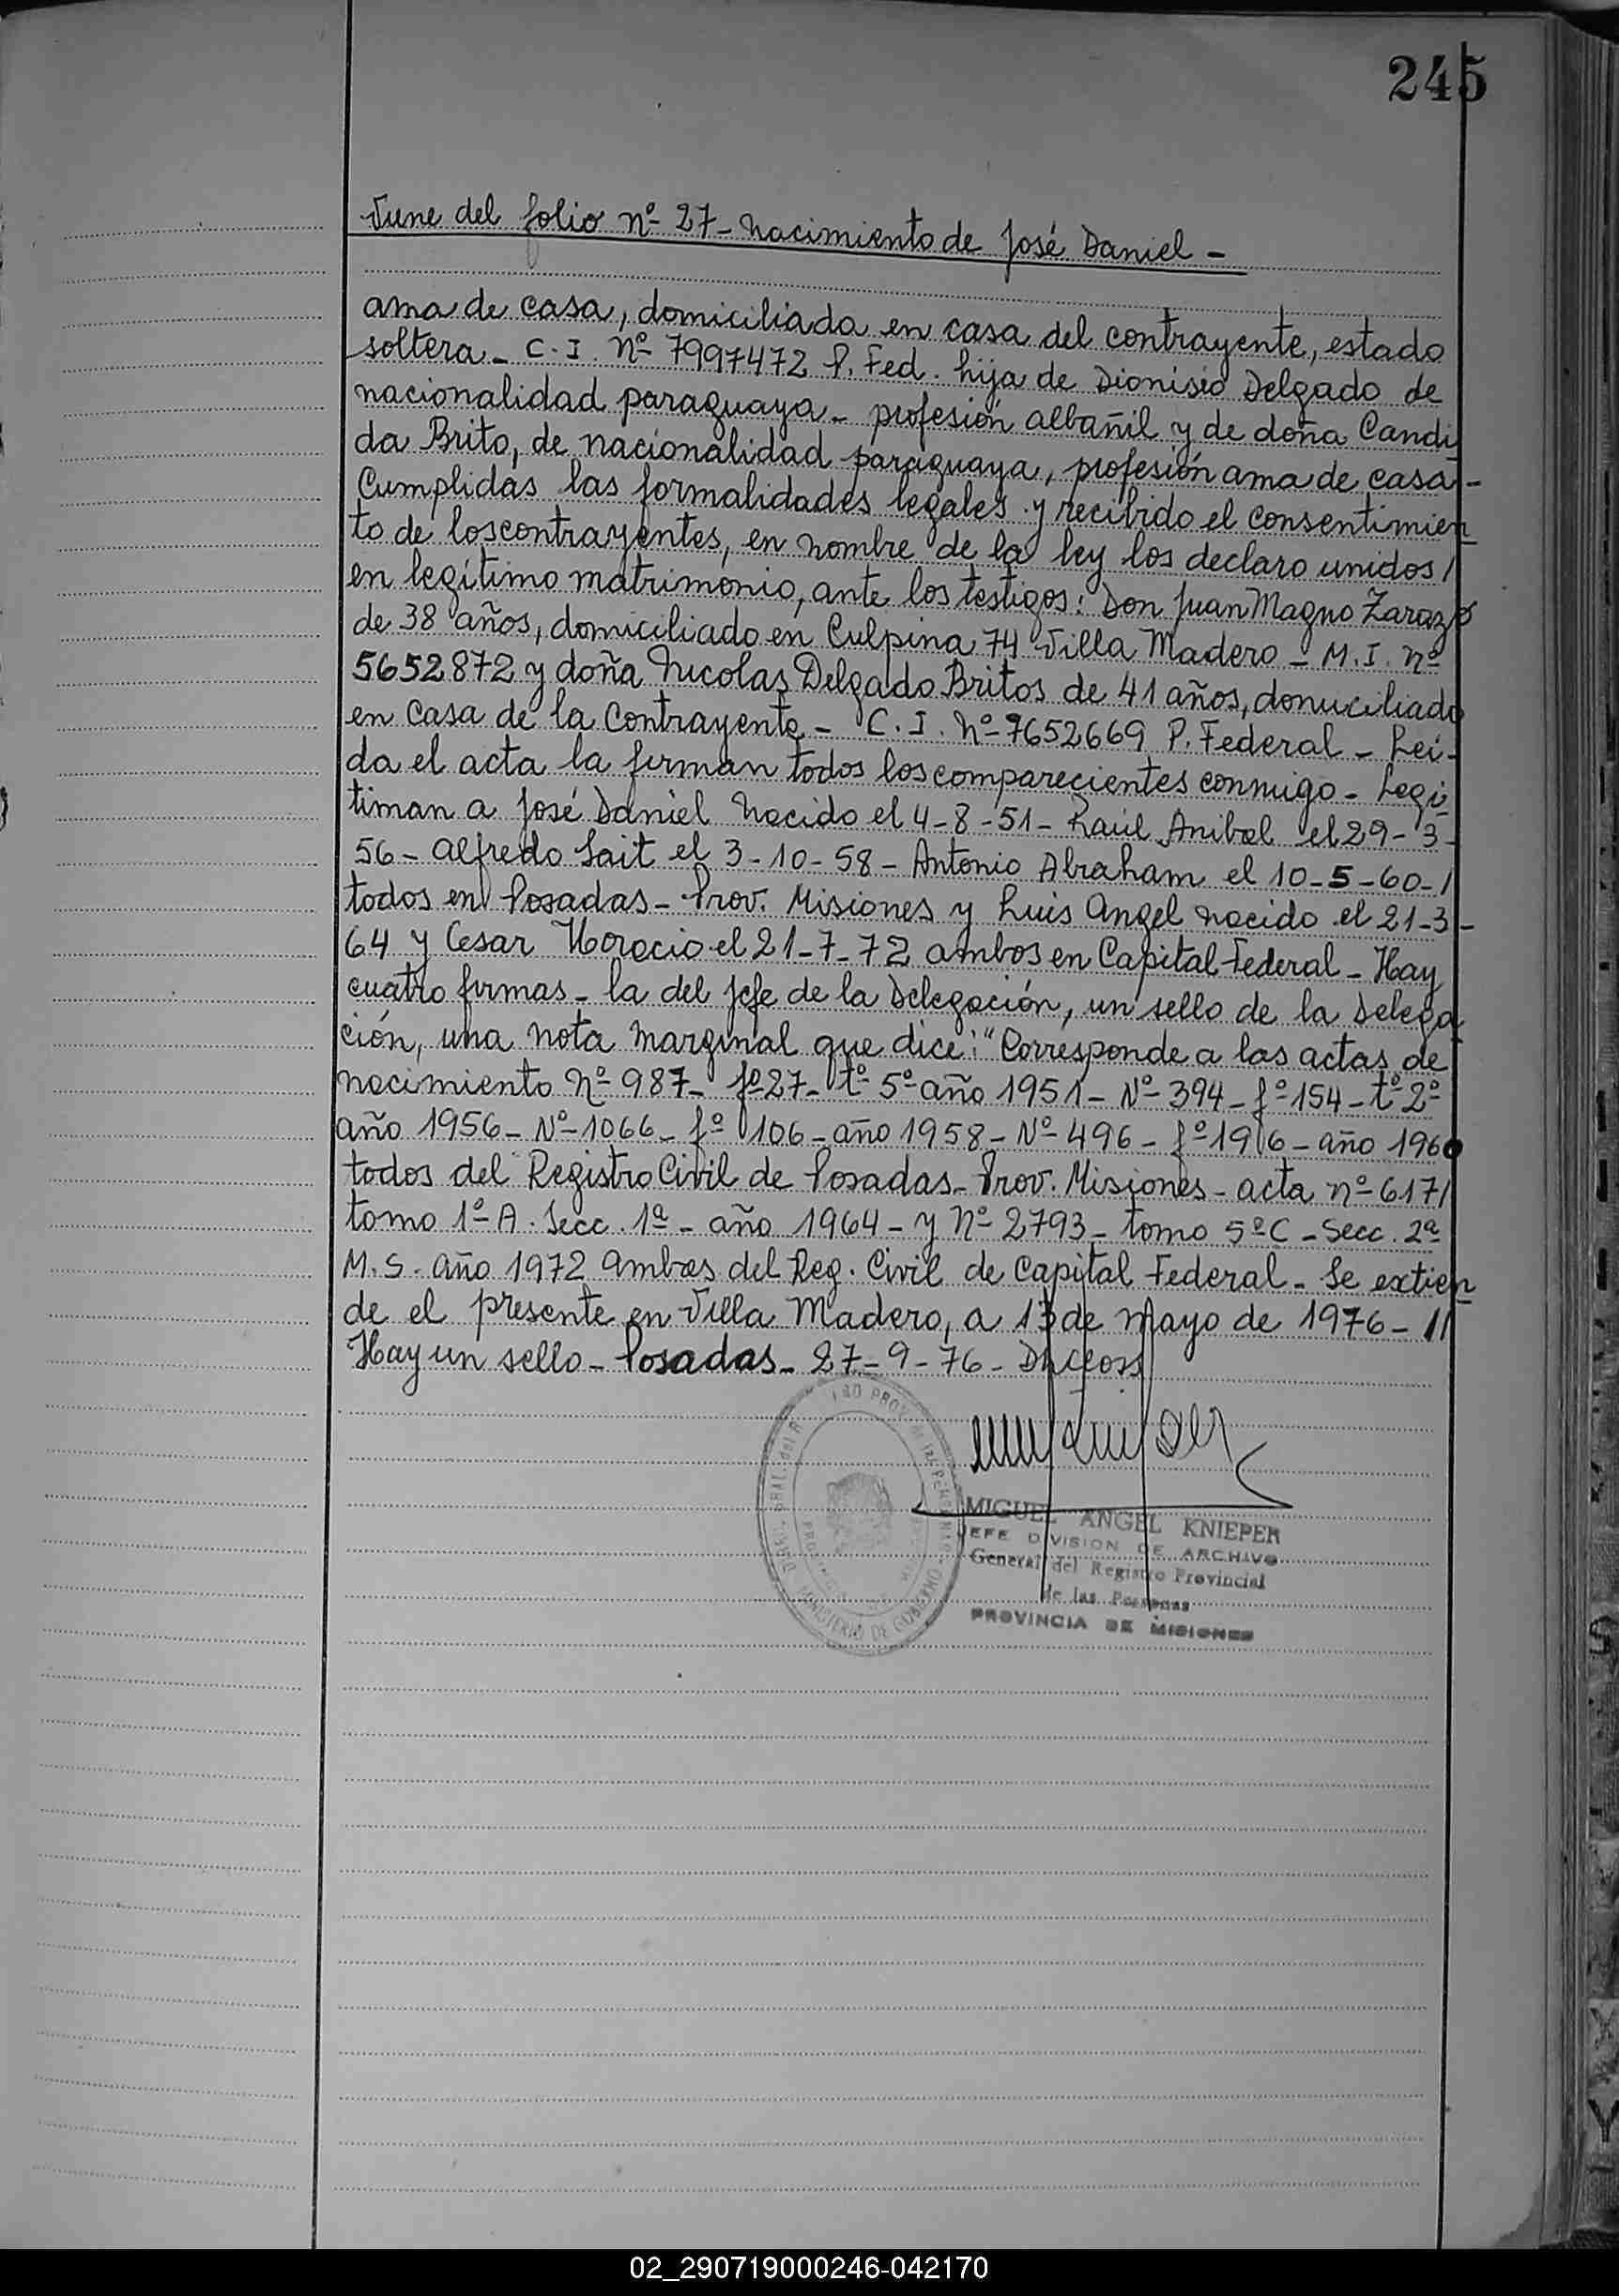 245
Viene del folio nº 27 - Nacimiento de José Daniel -
ama de casa, domiciliada en casa del contrayente, estado
soltera - C. I. Nº 7997472 P. Fed. hija de Dionisio Delgado de
nacionalidad paraguaya - profesión albañil y de doña Candi
da Brito, de nacionalidad paraguaya, profesión ama de casa -
Cumplidas las formalidades legales y recibido el consentimien
to de los contrayentes, en nombre de la ley los declaro unidos /
en legítimo matrimonio, ante los testigos: Don Juan Magno Zarazo
de 38 años, domiciliado en Culpina 74 Villa Madero - M. I. nº
5652872 y doña Nicolas Delgado Britos de 41 años, domiciliado
en casa de la contrayente - C. I. Nº 7652669 P. Federal - Lei-
da el acta la firman todos los comparecientes conmigo - Legi
timan a José Daniel nacido el 4-8-51 - Raúl Anibal el 29-3-
56 - Alfredo Sait el 3-10-58 - Antonio Abraham el 10-5-60 - /
todos en Posadas - Prov. Misiones y Luis Angel nacido el 21-3-
64 y Cesar Horacio el 21-7-72 ambos en Capital Federal - Hay
cuatro firmas - la del Jefe de la Delegación, un sello de la Delega
ción, una nota marginal que dice: "Corresponde a las actas de
nacimiento Nº 987 - fº 27 - tº 5º año 1951 - Nº 394 - fº 154 - tº 2º
año 1956 - Nº 1066 - fº 106 - año 1958 - Nº 496 - fº 196 - año 1960
todos del Registro Civil de Posadas - Prov. Misiones - acta nº 617 /
tomo 1º A. Secc. 1ª - año 1964 - y Nº 2793 - tomo 5º C - Secc. 2ª
M. S. año 1972 ambos del Reg. Civil de Capital Federal - Se extien
de el presente en Villa Madero, a 13 de mayo de 1976 - //
Hay un sello - Posadas - 27-9-76 -
MIGUEL ANGEL KNIEPER
JEFE DIVISION DE ARCHIVO
General del Registro Provincial
de las Personas
PROVINCIA DE MISIONES
MINISTERIO DE GOBIERNO
02_290719000246-042170